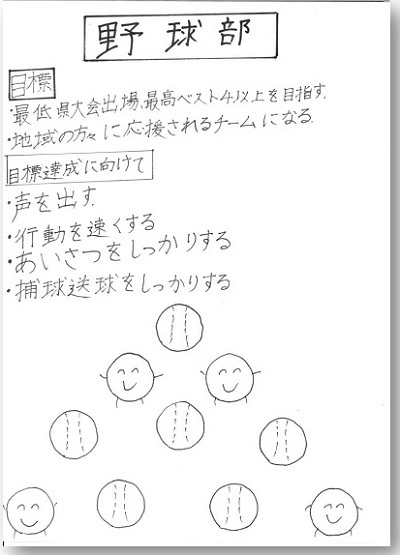 野球部
目標
・最低県大会出場、最高ベスト4以上を目指す.
・地域の方々に応援されるチームになる.
目標達成に向けて
・声を出す.
・行動を速くする
・あいさつをしっかりする
・捕球送球をしっかりする